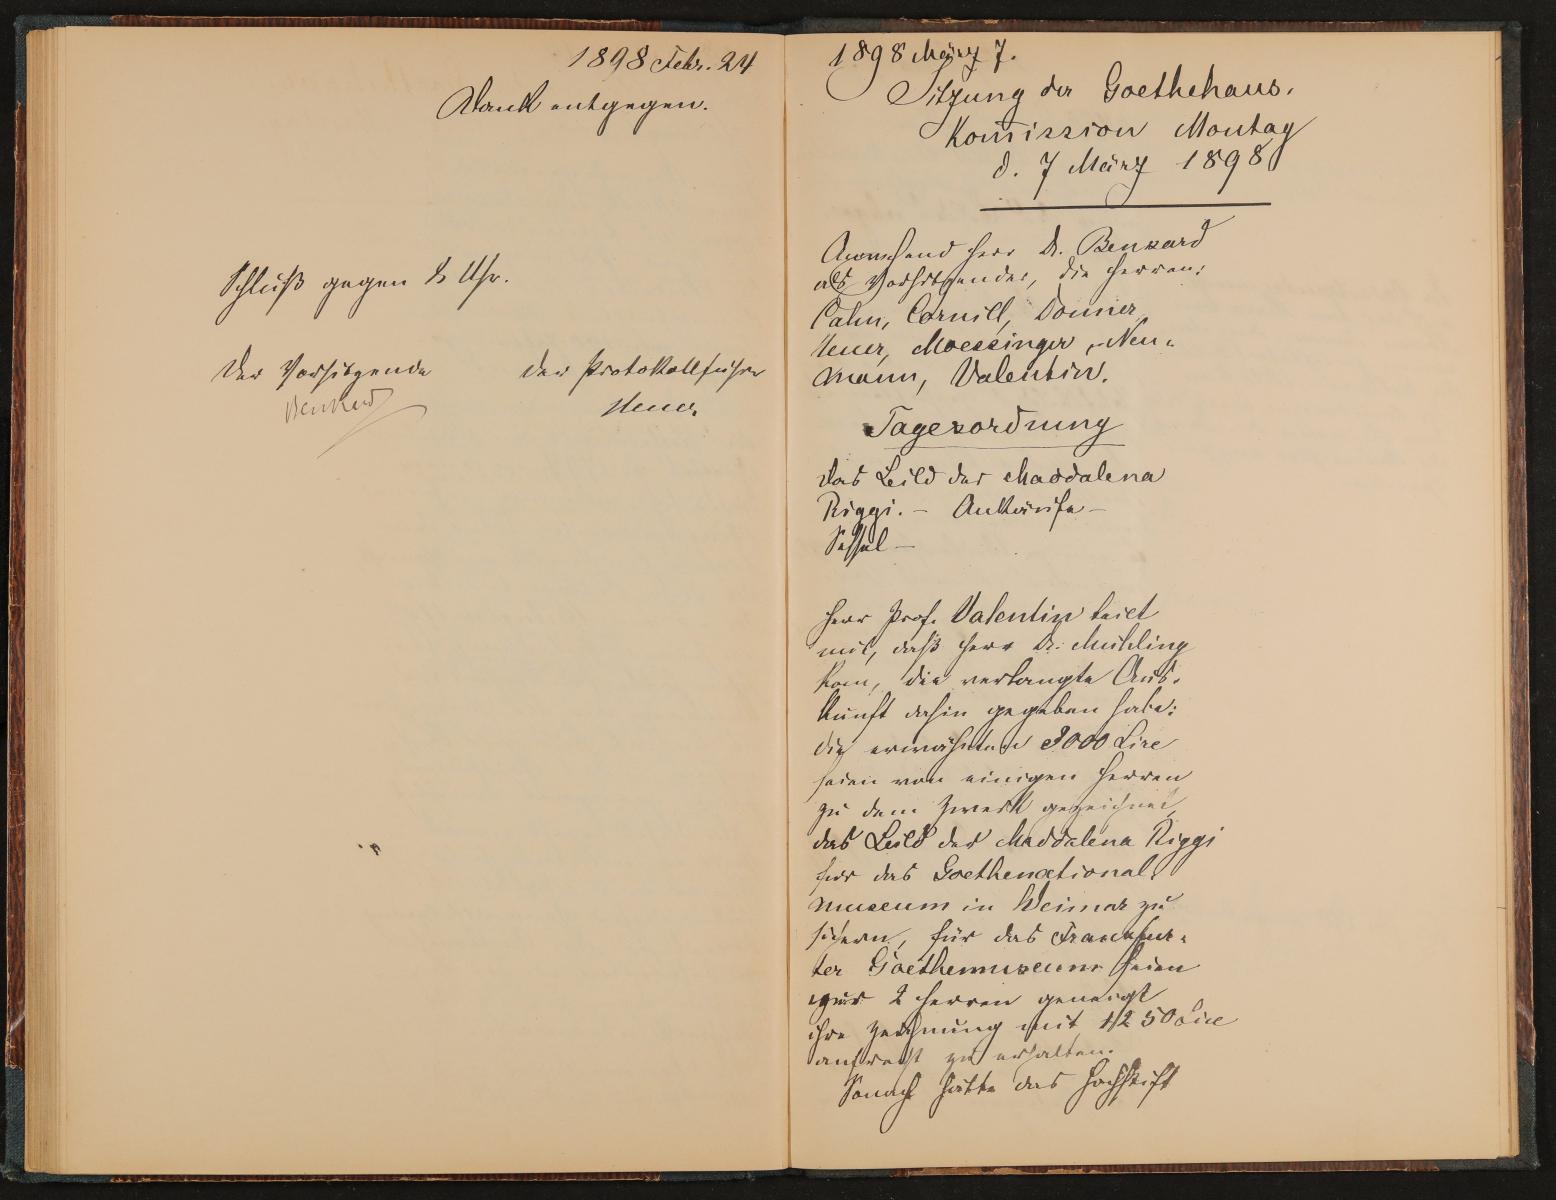 1898 Febr. 24
Dank entgegen.
Schluß gegen 8 Uhr.
Der Vorsitzende
Der Protokollführer
Benkard
Heuer.
1898 März 7.
Sitzung der Goethehaus-
Kom̄ission Montag
d. 7 März 1898
Anwesend Herr Dr. Benkard
als Vorsitzender, die Herren:
Cahn, Cornill, Donner
Heuer, Moessinger, Neu-
mann, Valentin.
Tagesordnung
Das Bild der Maddalena
Riggi. – Ankäufe –
Sessel –
Herr Prof. Valentin teilt
mit, daß Herr Dr. Mühling
Rom, die verlangte Aus-
kunft dahin gegeben habe:
die erwähnten 3000 Lire
seien von einigen Herren
zu dem Zweck gezeichnet,
das Bild der Maddalena Riggi
für das Goethenational-
museum in Weimar zu
sichern, für das Frankfur-
ter Goethemuseum seien
nur 2 Herren geneigt
ihre Zeichnung mit 1250 Lire
aufrecht zu erhalten.
Sonach hätte das Hochstift